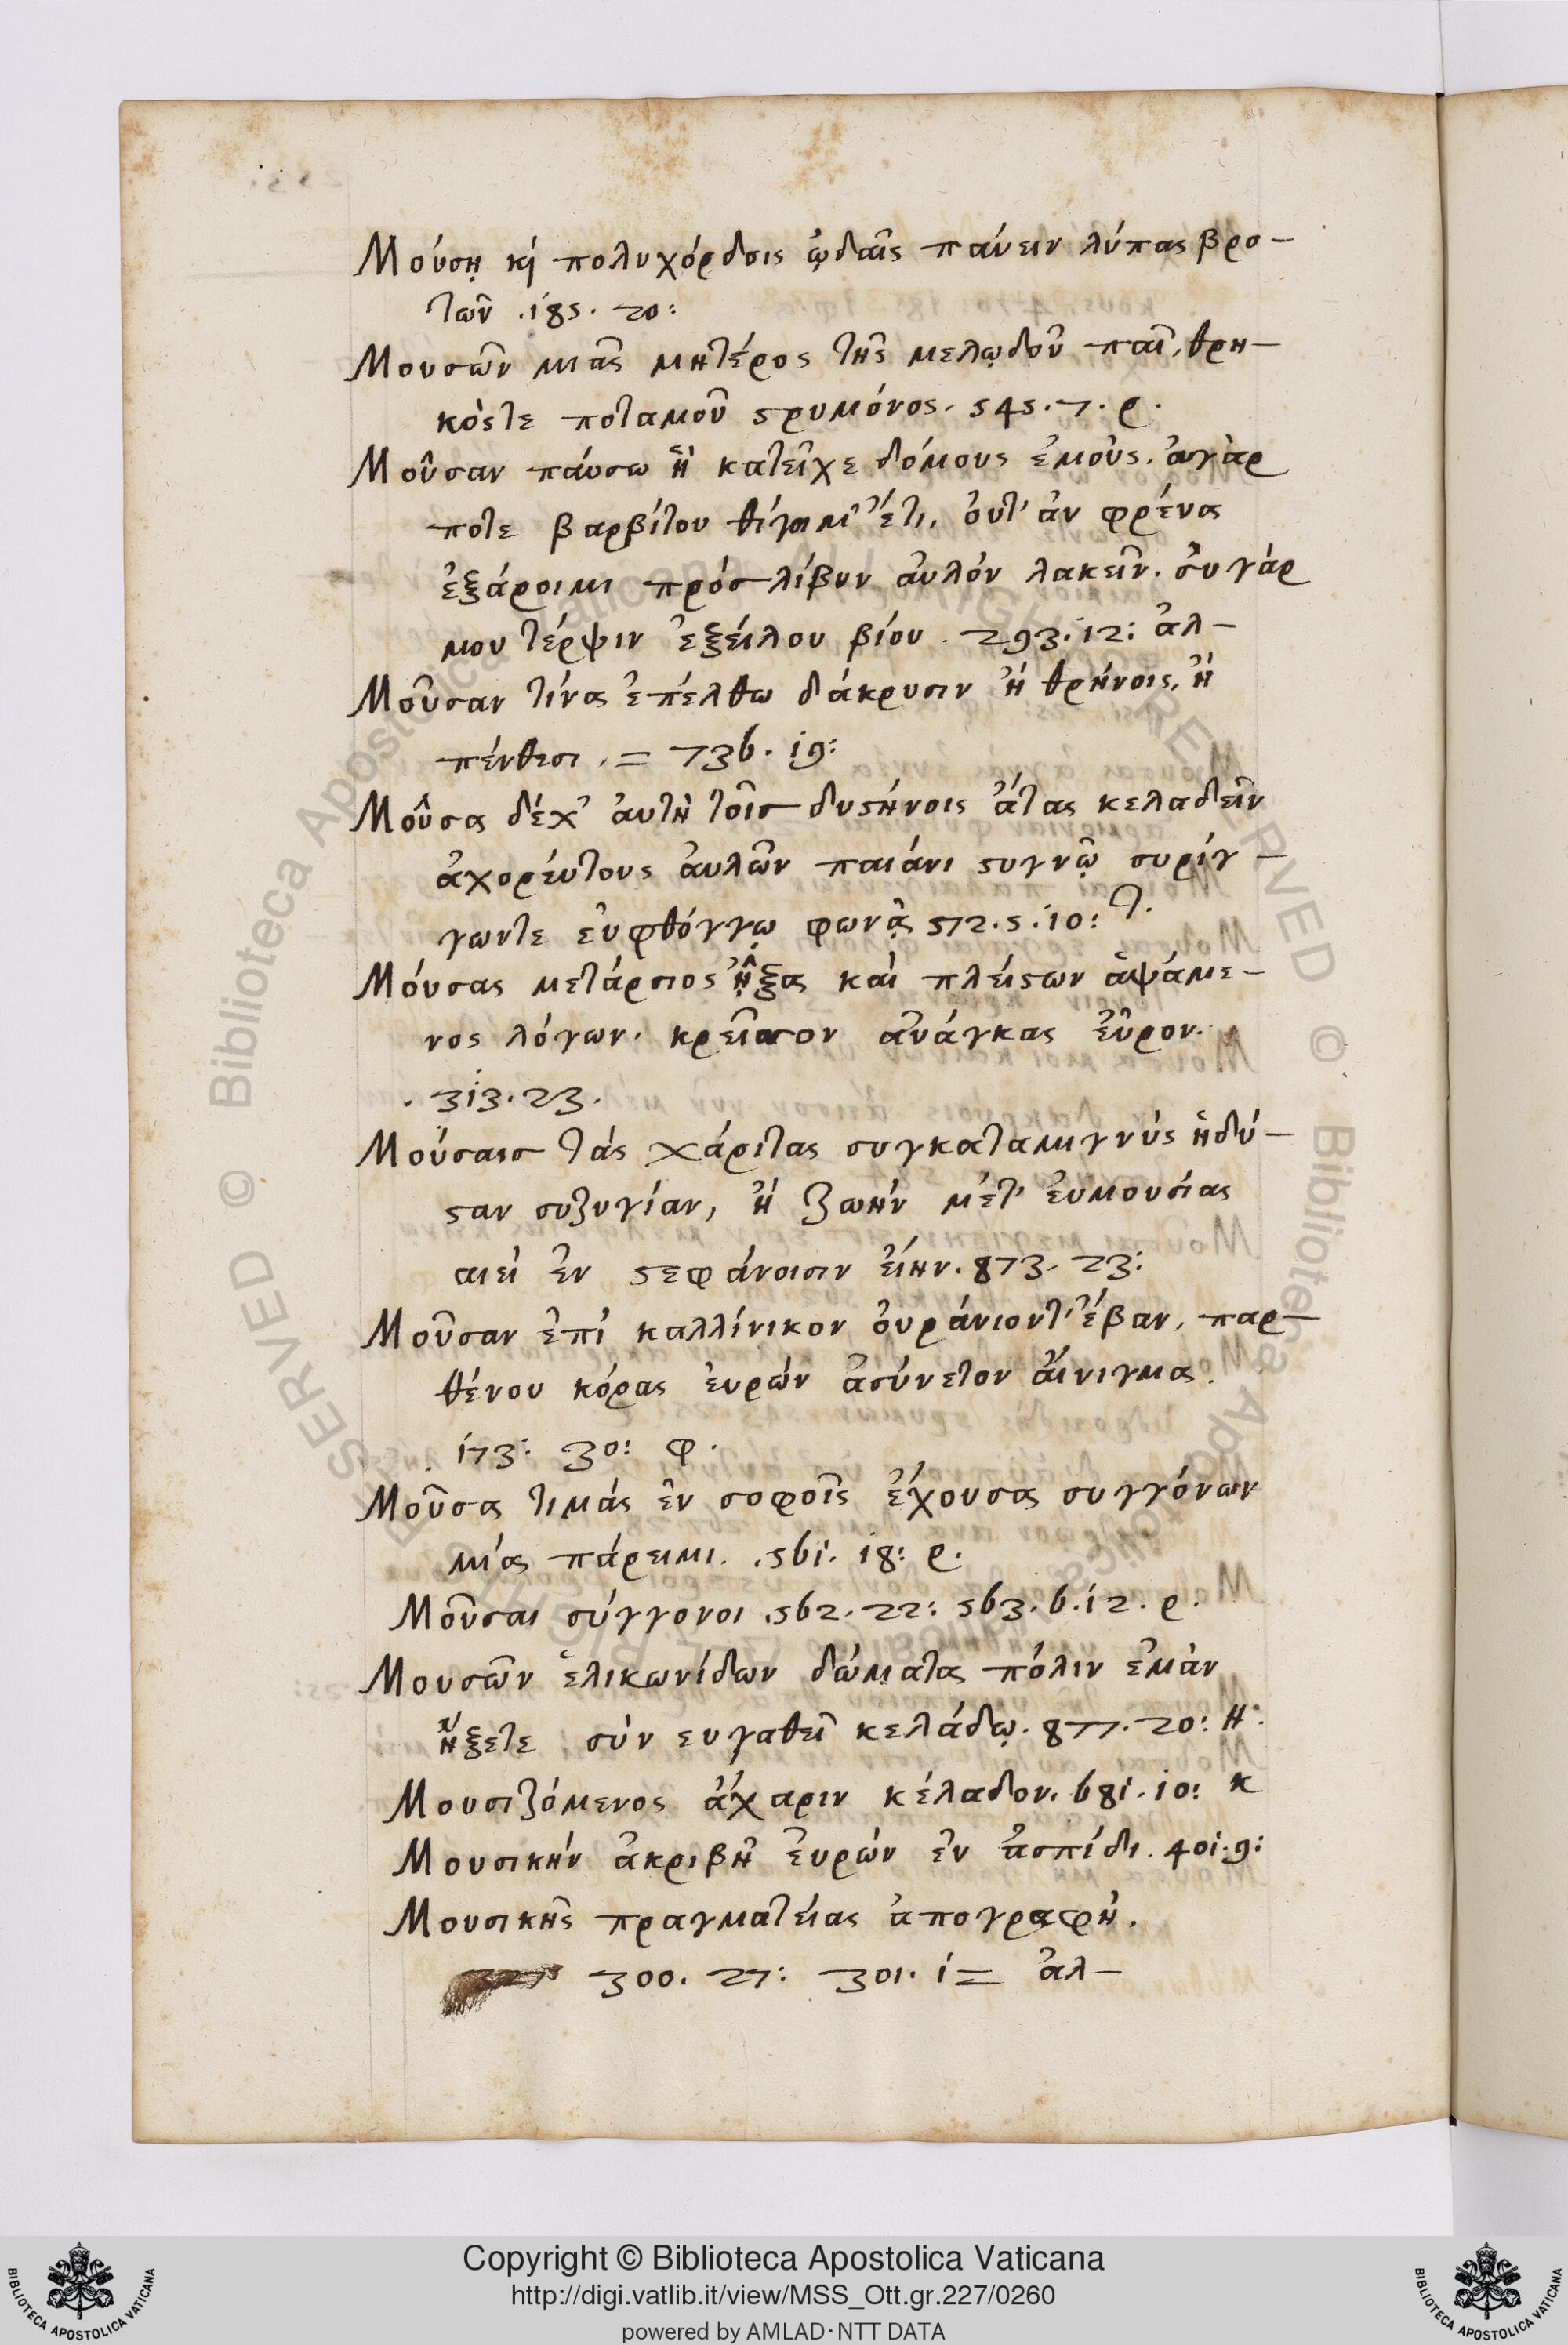 Μούσῃ κὶ πολυχόρδοις ᾠδαῖς παύειν λύπας βρο-
τῶν .185. 20:
Μουσῶν μιᾶς μητέρος τῆς μελῳδοῦ παῖ, θρη-
κὸς τε ποταμοῦ στρυμόνος. 545. 7. ρ.
Μοῦσαν παύσω ἣ κατεῖχε δόμους ἐμοὺς.
ποτε βαρβίτου θίγοιμ' ἔτι, οὐτ' ἀν φρένας
ἐξάροιμι πρὸς λίβυν ἀυλὸν λακεῖν. σὺ γὰρ
μου τέρψιν ἐξείλου βίου. 293. 12: ἀλ-
Μοῦσαν τίνα ἐπέλθω δάκρυσιν ἢ θρήνοις, ἢ
πένθεσι. = 736. 19:
Μοῦσα δέχ' ἀυτὴ τοῖς δυστήνοις ἄτας κελαδεῖν
ἀχορέυτους ἀυλῶν παιάνι στυγνῷ συρίγ-
γωντε εὐφθόγγῳ φωνᾷ 572. 5. 10: τ.
Μόυσας μετάρσιος ᾖξα καὶ πλείστων ἁψάμε-
νος λόγων. κρεῖσσον ἀνάγκας εὗρον.
. 313. 23.
Μούσαις τὰς χάριτας συγκαταμιγνὺς ἡδύ-
σταν συζυγίαν, ἢ ζωὴν μετ' ἐυμουσίας
αιεὶ ἐν στεφάνοισιν εἴην. 873. 23:
Μοῦσαν ἐπὶ καλλίνικον ὀυράνιοντ' ἔβαν, παρ-
θένου κόρας ἑυρὼν ἀσύνετον ἄινιγμα.
. 173: 30: φ.
Μοῦσα τιμὰς ἐν σοφοῖς ἔχουσα συγγόνων
μία πάρειμι. .561. 18: ρ.
Μοῦσαι σύγγονοι .562. 22: 563. 6. 12. ρ.
Μουσῶν ἑλικωνίδων δώματα πόλιν ἐμὰν
ἥξετε σὺν ευγαθεῖ κελάδῳ. 877. 20: Η.
Μουσιζόμενος ἄχαριν κέλαδον. 681. 10: κ
Μουσικὴν ἀκριβῆ ἑυρὼν ἐν ἀσπίδι. 401. 9:
Μουσικῆς πραγματείας ἀπογραφὴ.
300. 27: 301. 1 = ἀλ-
Copyright © Biblioteca Apostolica Vaticana
http://digi.vatlib.it/view/MSS_Ott.gr.227/0260
powered by AMLAD·NTT DATA